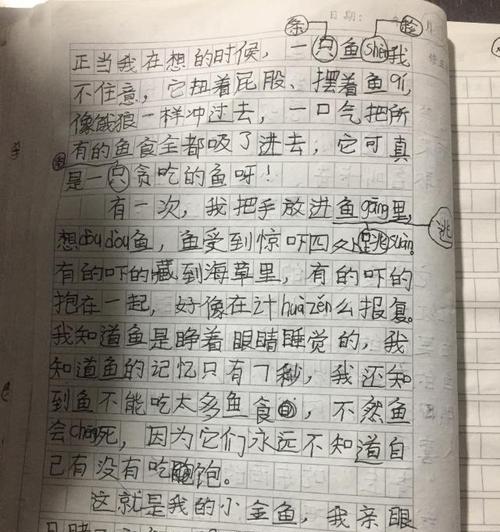 条 日期: 趁
正当我在想的时候，一只鱼shèn我
不住意，它扭着屁股、摆着鱼qí，
像饿狼一样冲过去，一口气把所
有的鱼食全都吸了进去，它可真
是一只贪吃的鱼呀！
有一次，我把手放进鱼gāng里，
想dòu dòu鱼，鱼受到惊吓四处
逃
有的吓的藏到海草里，有的吓的
抱在一起，好像在计huà zěn么报复。
我知道鱼是睁着眼睛睡觉的，我
知道鱼的记忆只有7秒，我还知
到鱼不能吃太多鱼食，不然鱼
会chēng死，因为它们永远不知道自
己有没有吃饱。
这就是我的小金鱼，我亲眼